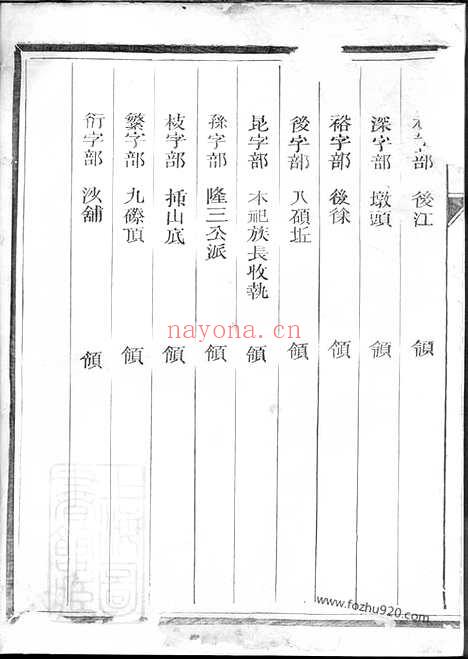 字部 後江 領
深字部 墩頭 領
裕字部 後徐 領
後字部 八碩坵 領
昆字部 本祀族長收執 領
孫字部 隆三公派 領
枝字部 插山底 領
繁字部 九磜頂 領
衍字部 沙舖 領
nayona.cn
www.fozhu920.com